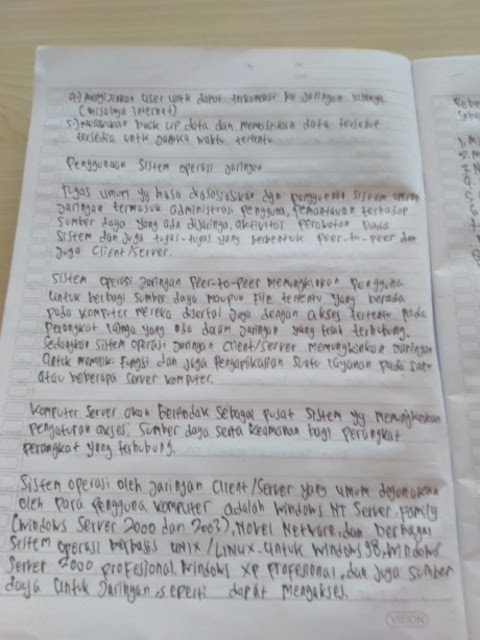 4.) Mengizinkan user untk dapat terkoneksi ke Jaringan lainnya
(misalnya internet)
5.) melakukan back up data dan memastikan data tersebut
tersedia untk jangka waktu tertentu
Penggunaan Sistem operasi Jaringan
Tugas umum yg biasa diasosiasikan dgn penggunaan sistem operasi
Jaringan termasuk administrasi pengguna, pemantauan terhadap
Sumber daya yang ada dijaringa, aktivitas perawatan pada
Sistem dan juga tugas-tugas yang berbentuk peer-to-peer dan
Juga Client/Server.
Sistem operasi Jaringan Peer-to-peer memungkinkan pengguna
Untuk berbagi sumber daya maupun File tertentu yang berada
pada komputer mereka disertai juga dengan akses tertentu pada
perangkat lainya yang ada dalam Jaringan yang telah terhubung.
Sedangkan sistem operasi Jaringan Client/Server memungkinkan Jaringan
Untuk memiliki Fungsi dan juga Pengaplikasian Suatu layanan pada satu
atau beberapa server komputer.
Komputer Server akan Bertindak sebagai pusat sistem yg memungkinkan
pengaturan akses, Sumber daya serta Keamanan bagi perangkat
perangkat yang terhubung.
Sistem operasi oleh Jaringan Client/Server yang umum digunakan
oleh para pengguna komputer adalah Windows NT Server Family
(Windows Server 2000 dan 2003), Novel Netware, dan berbagai
Sistem operasi berbasis UNIX/LINUX. Untuk Windows 98, Windows
Server 2000 profesional, Windows XP profesional, dan juga sumber
daya Untuk Jaringan, seperti dapat mengakses
VISION